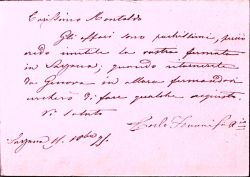 Carissimo Montaldo
Gli affari sono pochissimi, perciò
credo inutile la vostra fermata
in Sarzana; quando ritornerete
da Genova in Massa fermandovi
cercherò di fare qualche acquisto.
Vi saluto
Sarzana 11. 10bre 91.